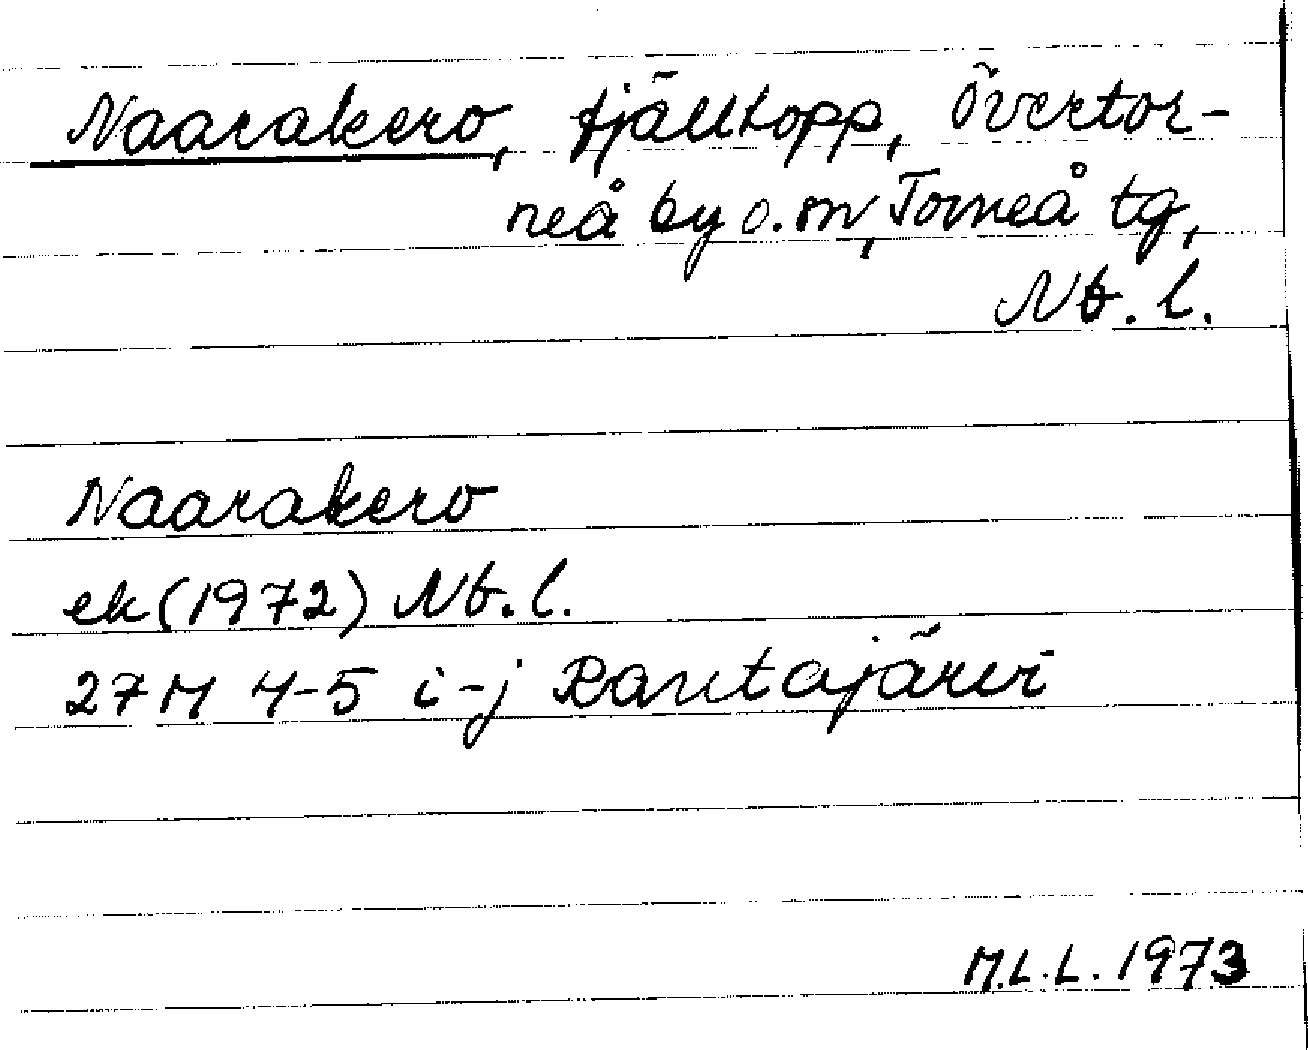 Naarakero, fjälltopp, Övertor-
neå by o. sn, Torneå tg,
Nb. l.
Naarakero
ek (1972) Nb. l.
27M 4-5 i-j Rantajärvi
M.L.L. 1973